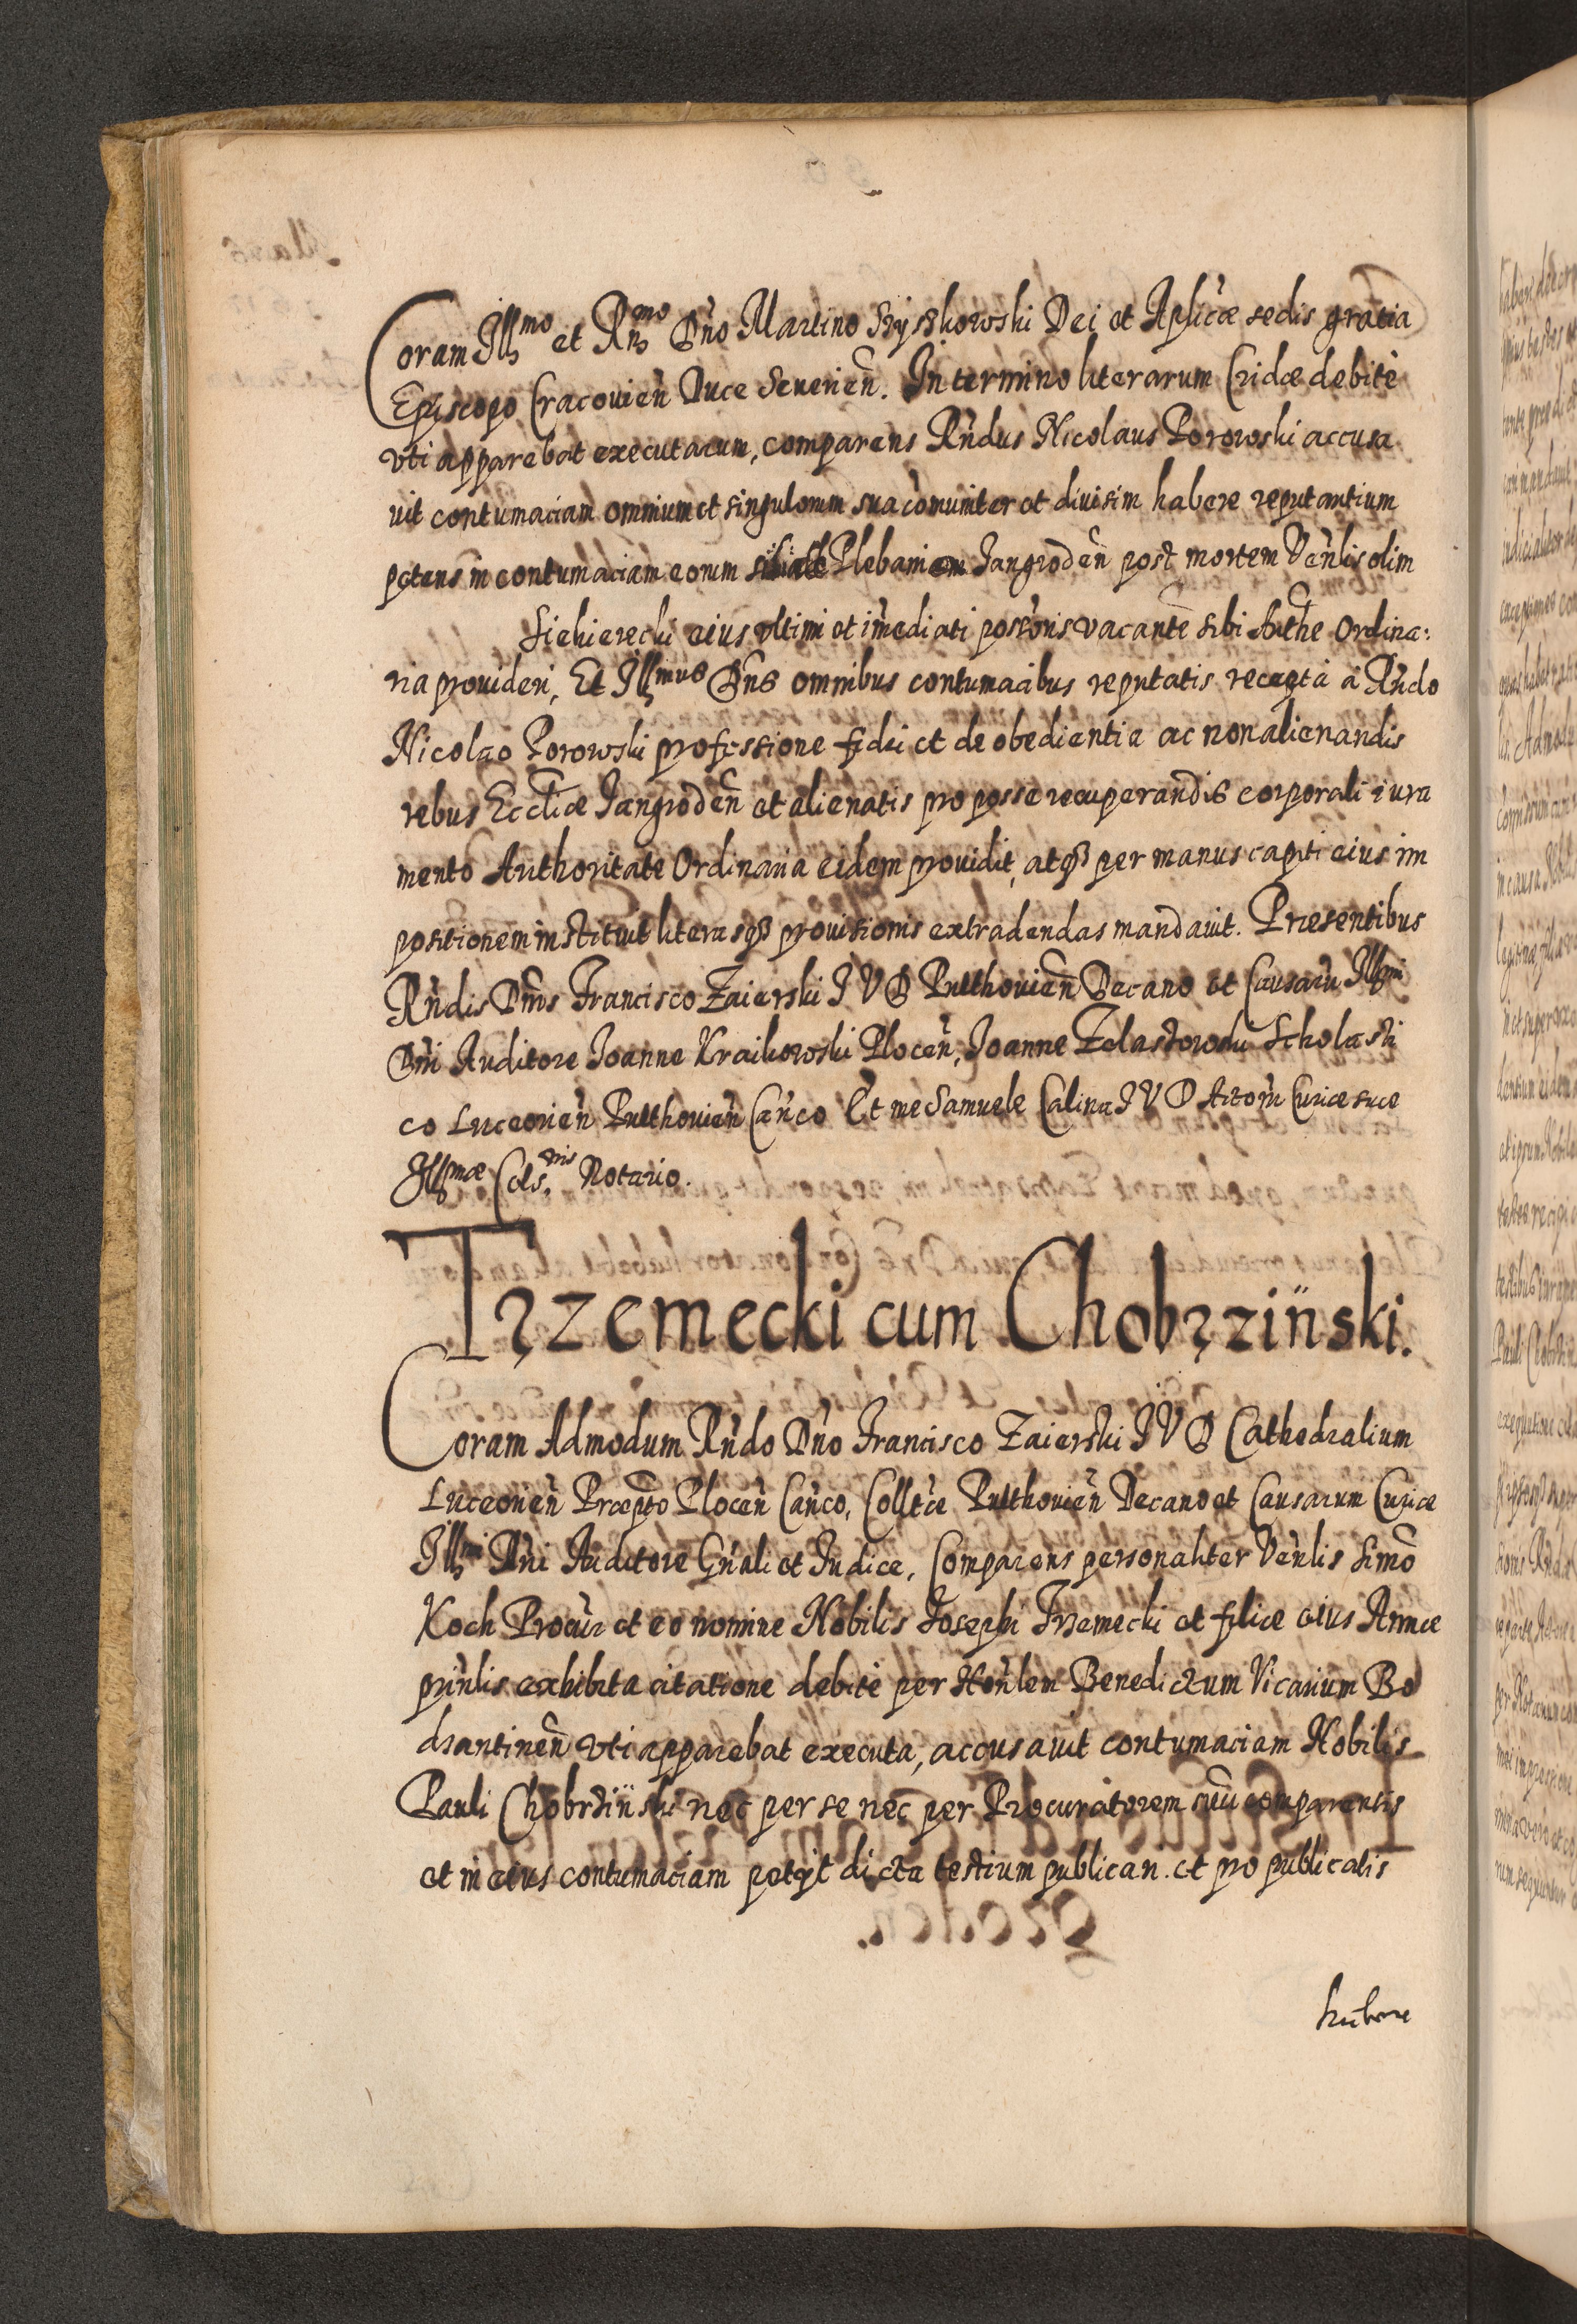 Coram Illmo et Rndmo Dño Martino Szyszkowski Dei et Aplicæ sedis gratia
Episcopo Cracouien̄ Duce Seuerien̄. In termino literarum Cridæ debitè
vti apparebat executarum, comparens Rñdus Nicolaus Porowski accusa
uit contumaciam omnium et singulorum sua com̄uniter et diuisim habere reputantium
petens in contumaciam eorum Plebaniem Jangroden̄ post mortem Ven̄lis olim
Siekierecki eius vltimi et im̄ediati poss̄oris vacantē sibi Auth̄e Ordina:
ria prouideri, Et Illmus Dn̄s omnibus contumacibus reputatis recepta à Rñdo
Nicolao Porowski professione fidei et de obedientia ac non alienandis
rebus Eccl̄iæ Jangroden̄ et alienatis pro posse recuperandis corporali iura
mento Authoritate Ordinaria eidem prouidit, atq; per manus capiti eius im
positionem instituit literasq; prouisionis extradendas mandauit. Præsentibus
Rñdis Dn̄is Francisco Zaierski I V D Pulthouien̄ Decano et Causarū Illmi
Dn̄i Auditore Joanne Kraikowski Plocen̄, Joanne Zelastowski Scholasti
co Luceorien̄ Pulthouien̄ Can̄co Et me Samuele Calina I V D Actor̄m Curiæ suæ
Illmæ Cels.nis Notario.
Trzemecki cum Chobrziński.
Coram Admodum Rñdo Dño Francisco Zaierski I V D Cathedralium
Luceorien̄ Præp̄to Plocen̄ Can̄co, Coll̄tæ Pulthouien̄ Decano et Causarum Curiæ
Illmi Dñi Auditore Gn̄ali et Iudice, Comparens personaliter Ven̄lis Simō
Koch Procur̄ et eo nomine Nobilis Josephi Trzemecki et filiæ eius Annæ
prin̄lis exhibita citatione debitè per Hon̄lem Benedictum Vicarium Bo
dzantinen̄ vti apparebat executa, accusauit contumaciam Nobilis
Pauli Chobrziński nec per se nec per Procuratorem suū comparentis
et in eius contumaciam petijt dicta testium publicari. et pro publicatis
habere